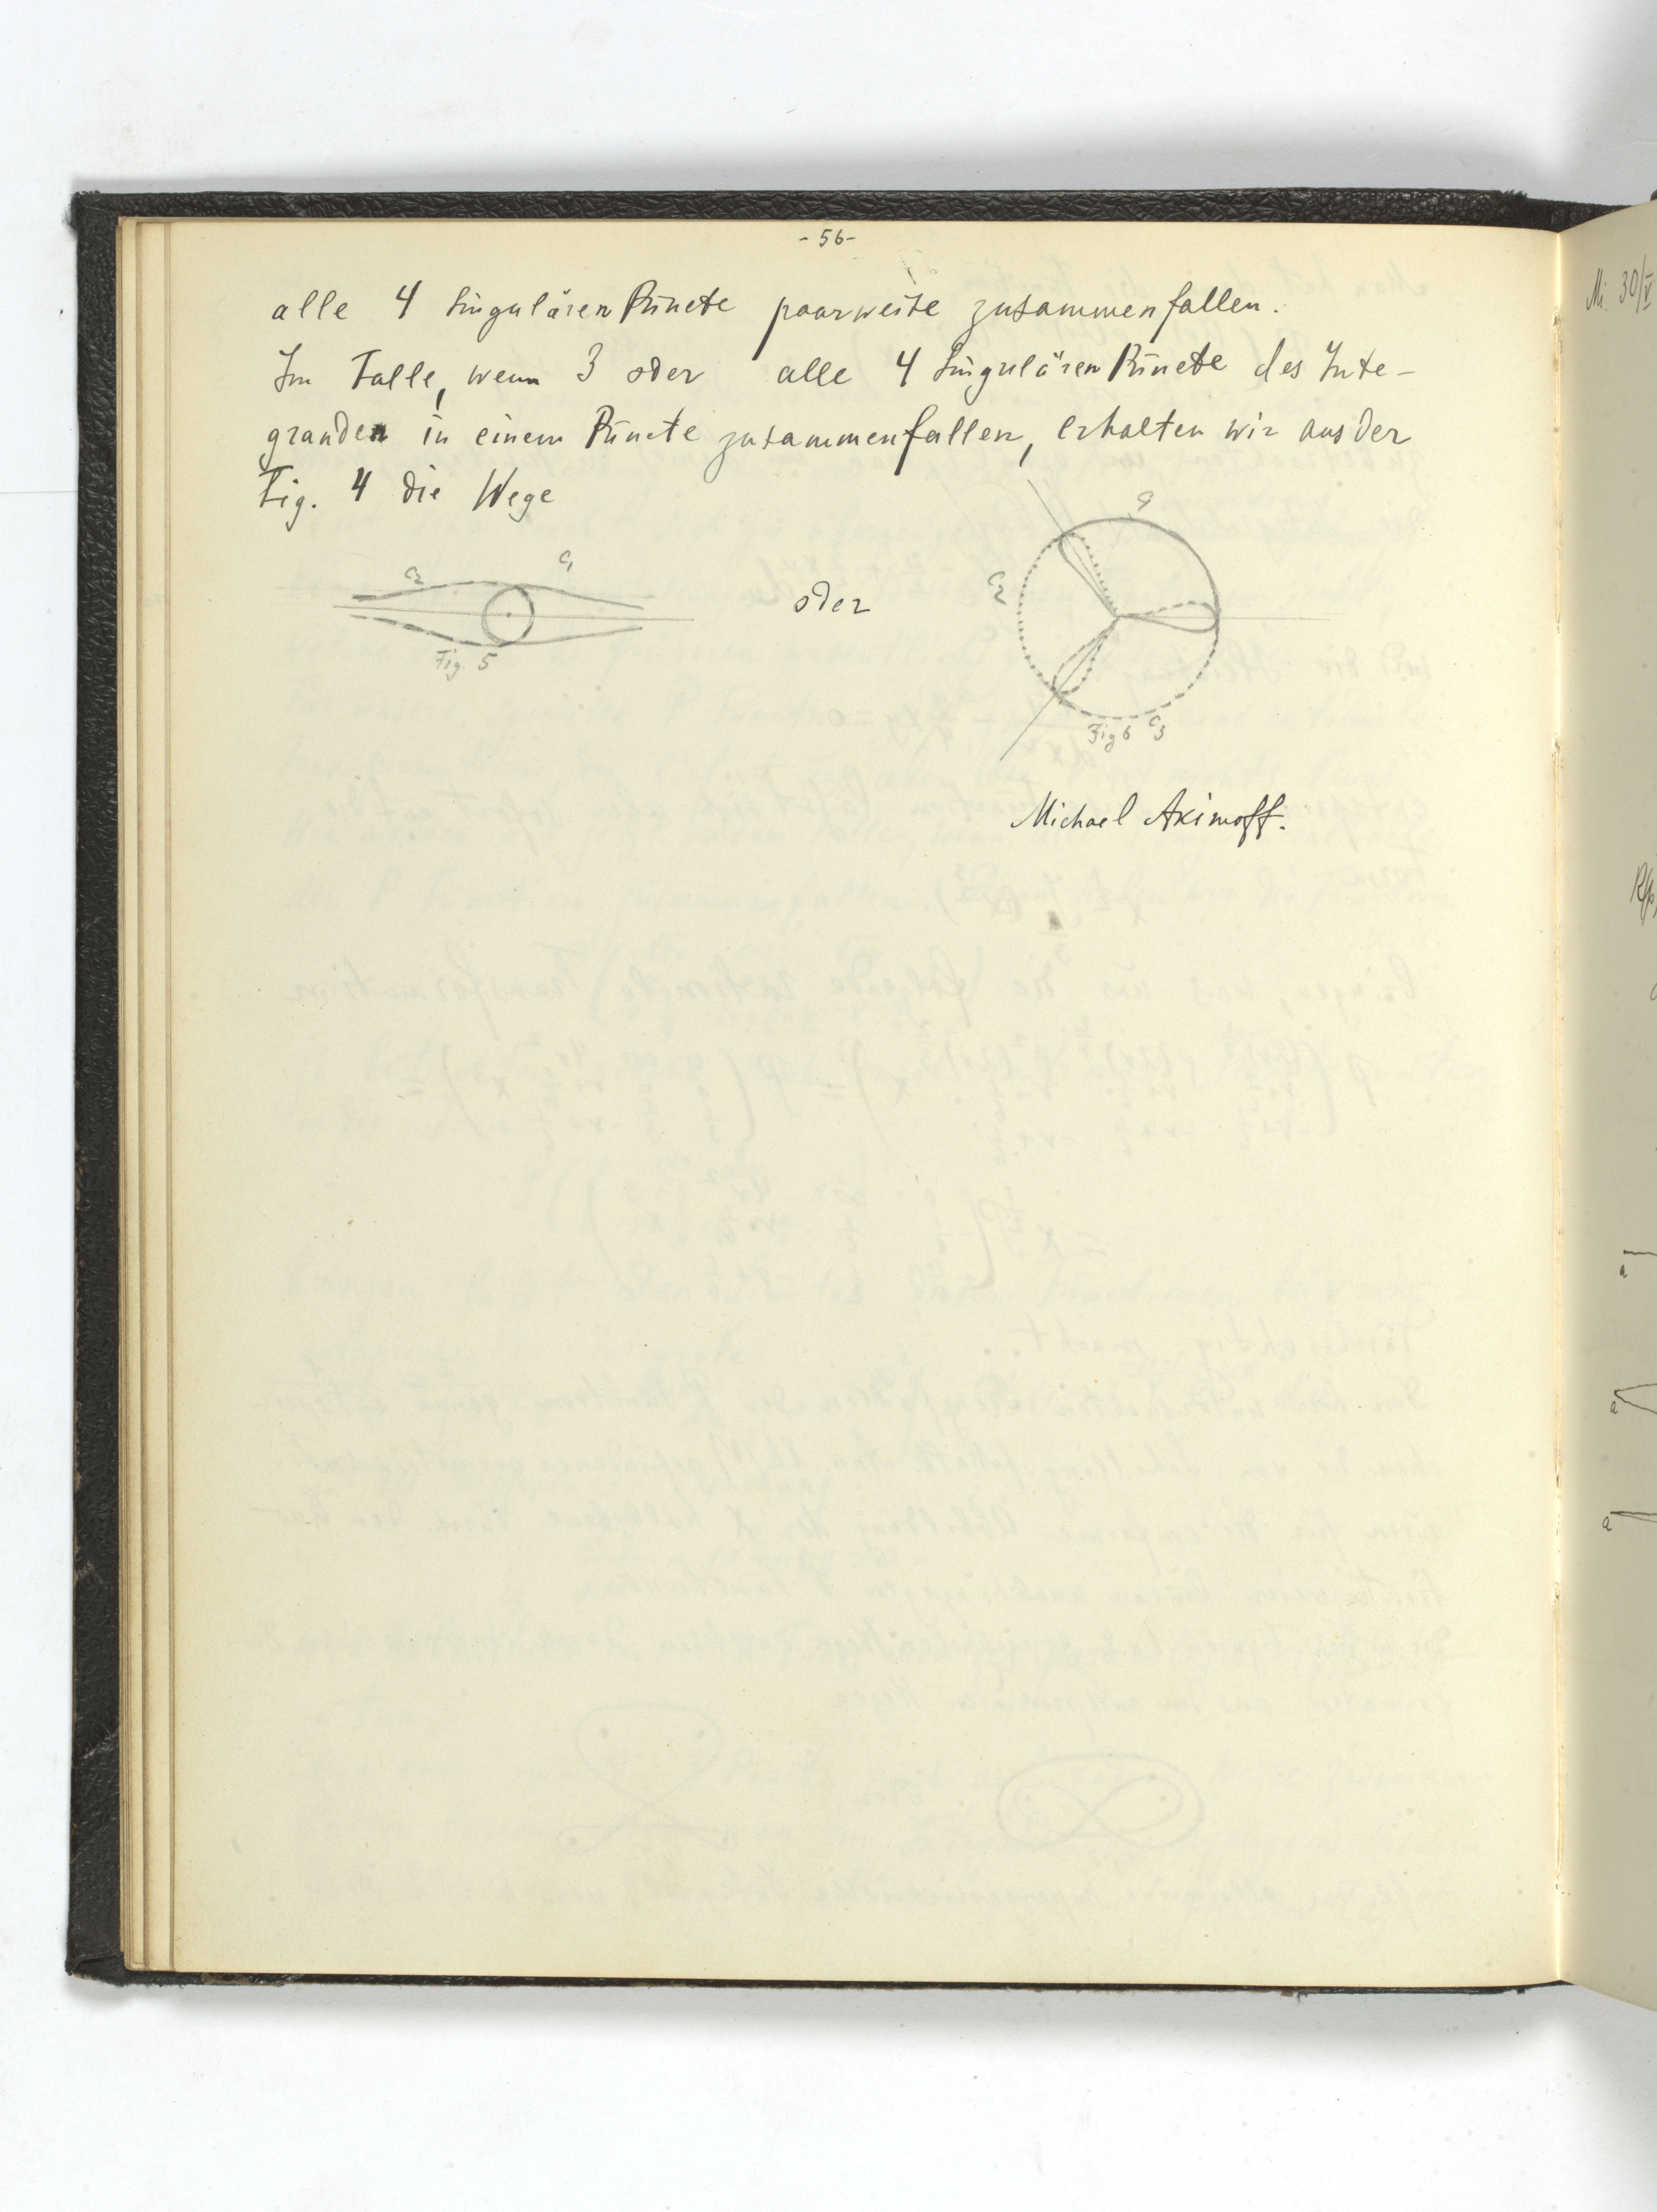 - 56 -
alle 4 singulären Püncte paarweise zusammenfallen.
Im Falle, wenn 3 oder alle 4 singulären Püncte des Inte-
granden in einem Püncte zusammenfallen, erhalten wir aus der
Fig. 4 die Wege
C2 C1
oder
C2
Fig. 5
Fig 6 C3
Michael Akimoff.
Mi. 30/V
a
a
a